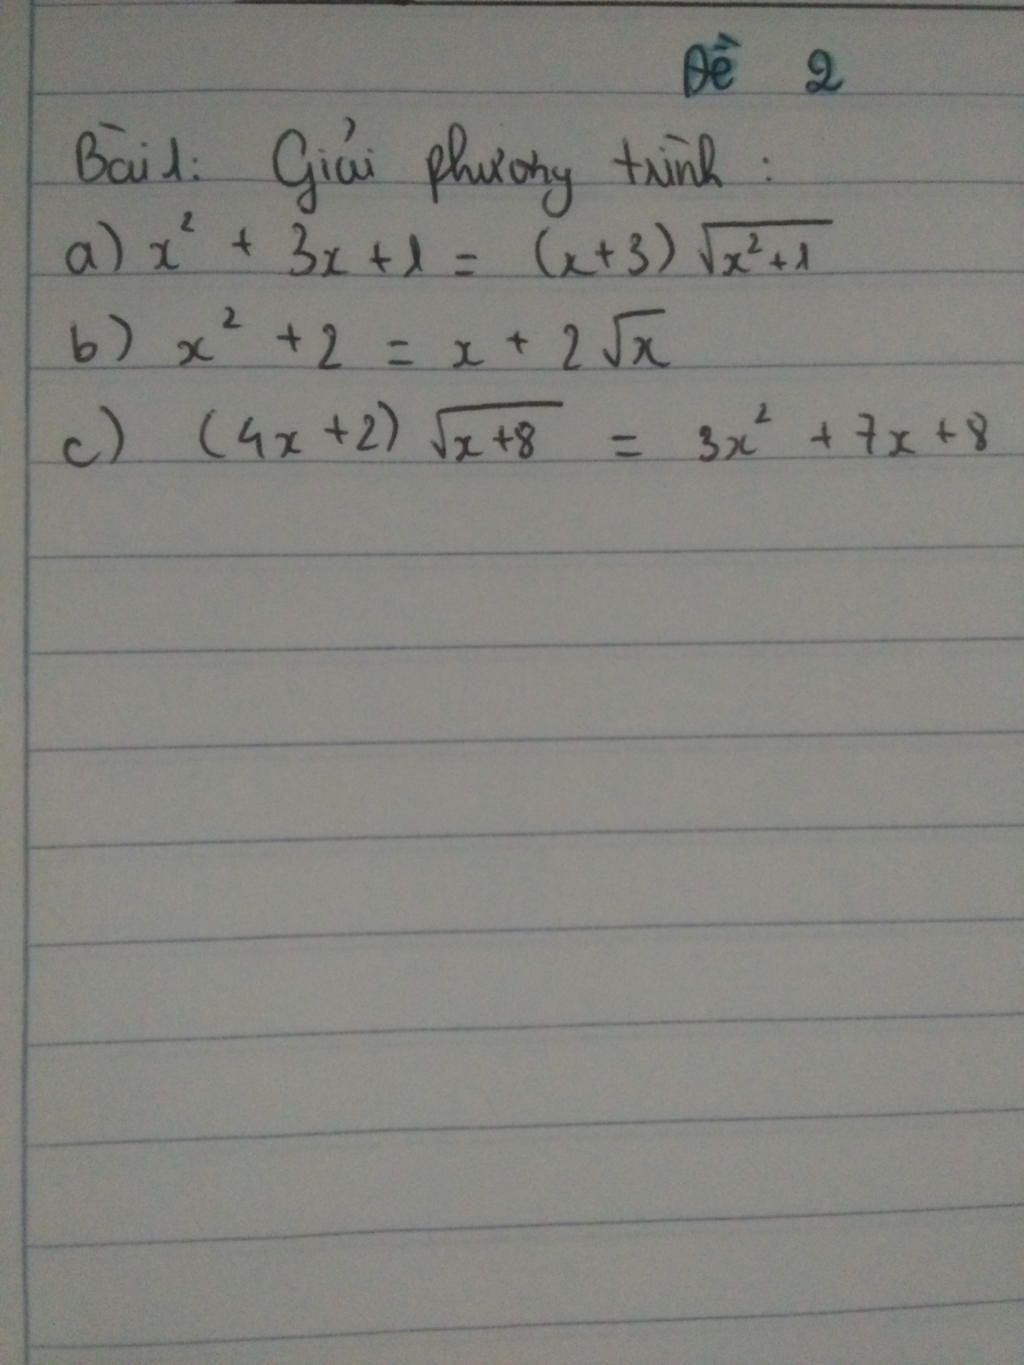 Đề 2
Bài 1: Giải phương trình:
a) x² + 3x + 1 = (x+3) √(x²+1)
b) x² + 2 = x + 2√x
c) (4x+2) √(x+8) = 3x² + 7x + 8